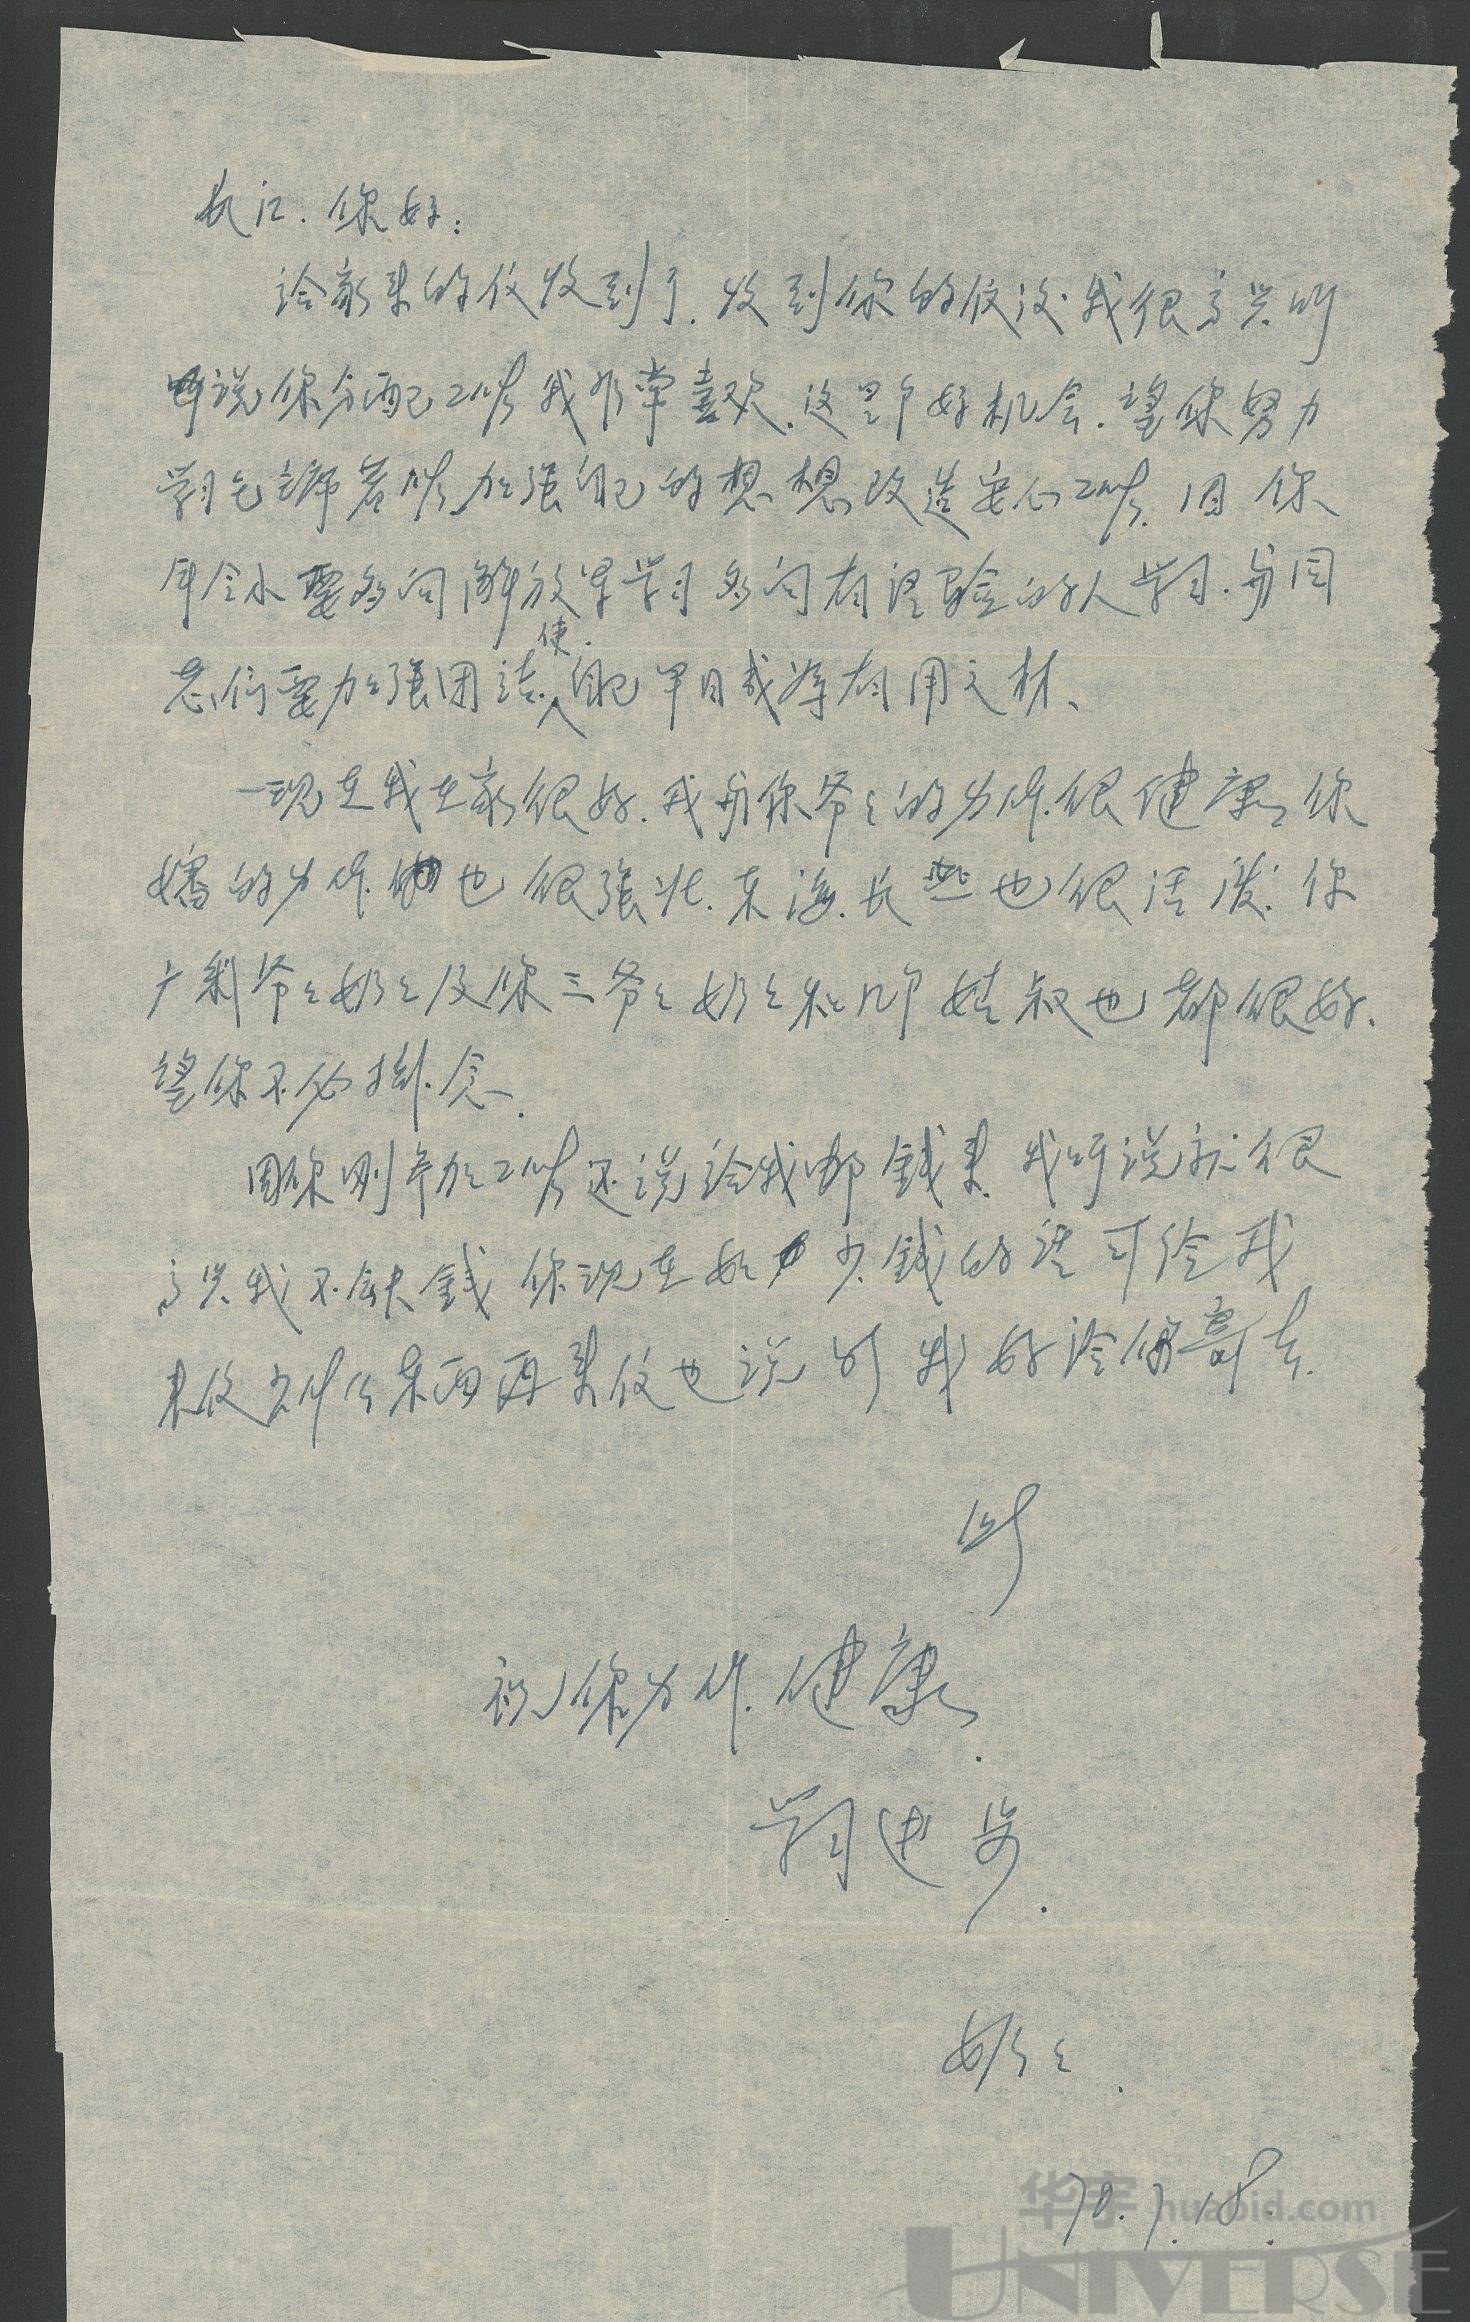 长江.你好:
给家来的信收到了.收到你的信没.我很高兴听
说你分配工作我非常喜欢.这是个好机会.望你努力
学习毛主席著作.加强自己的思想改造安心工作.因你
年令小要多向解放军学习多向有经验的人学习.与同
志们要加强团结.使自己早日成为有用之材、
现在我在家很好.我与你爷々的身体很健康你
婶的身体也很强壮.东海.长些也很活泼.你
广利爷々奶々及你三爷々奶々和几个姑叔也都很好.
望你不必掛念.
因你刚参加工作还说给我邮钱来.我听说就很
高兴我不缺钱你现在如少钱的话可给我
来信.少什么东西再来信也说明我好给你寄去.
此
祝你身体健康.
学习进步.
奶々.
70.7.18.
华宇 huabid.com
UNIVERSE